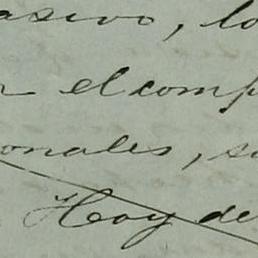 asivo, lo
el comp
onales, su
Hoy de